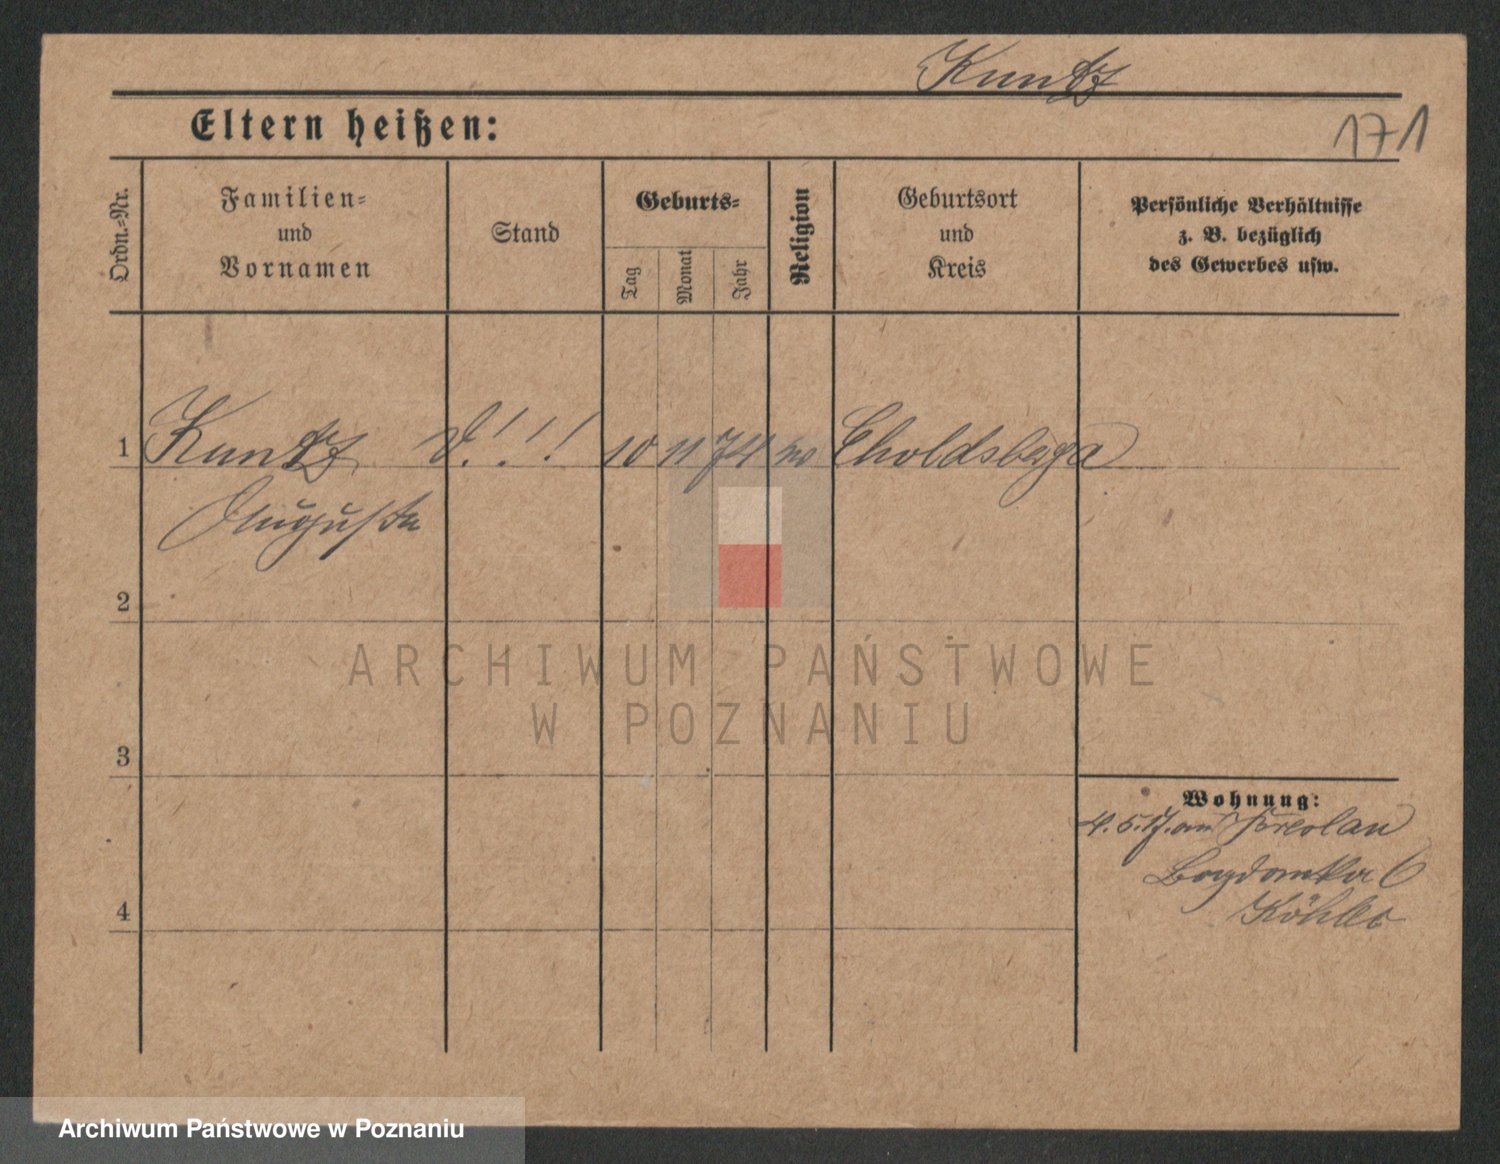 Kuntz
Eltern heißen:
171
Ordn.-Nr.
Familien-
und
Vornamen
Stand
Geburts-
Tag
Monat
Jahr
Religion
Geburtsort
und
Kreis
Persönliche Verhältnisse
z. B. bezüglich
des Gewerbes usw.
1 Kuntz d!!! 10 11 74
Auguste
2
ARCHIWUM PAŃSTWOWE
W POZNANIU
3
Wohnung:
4. 5. 17. aus Breslau
Bogdanka 6
Köhler
4
Archiwum Państwowe w Poznaniu